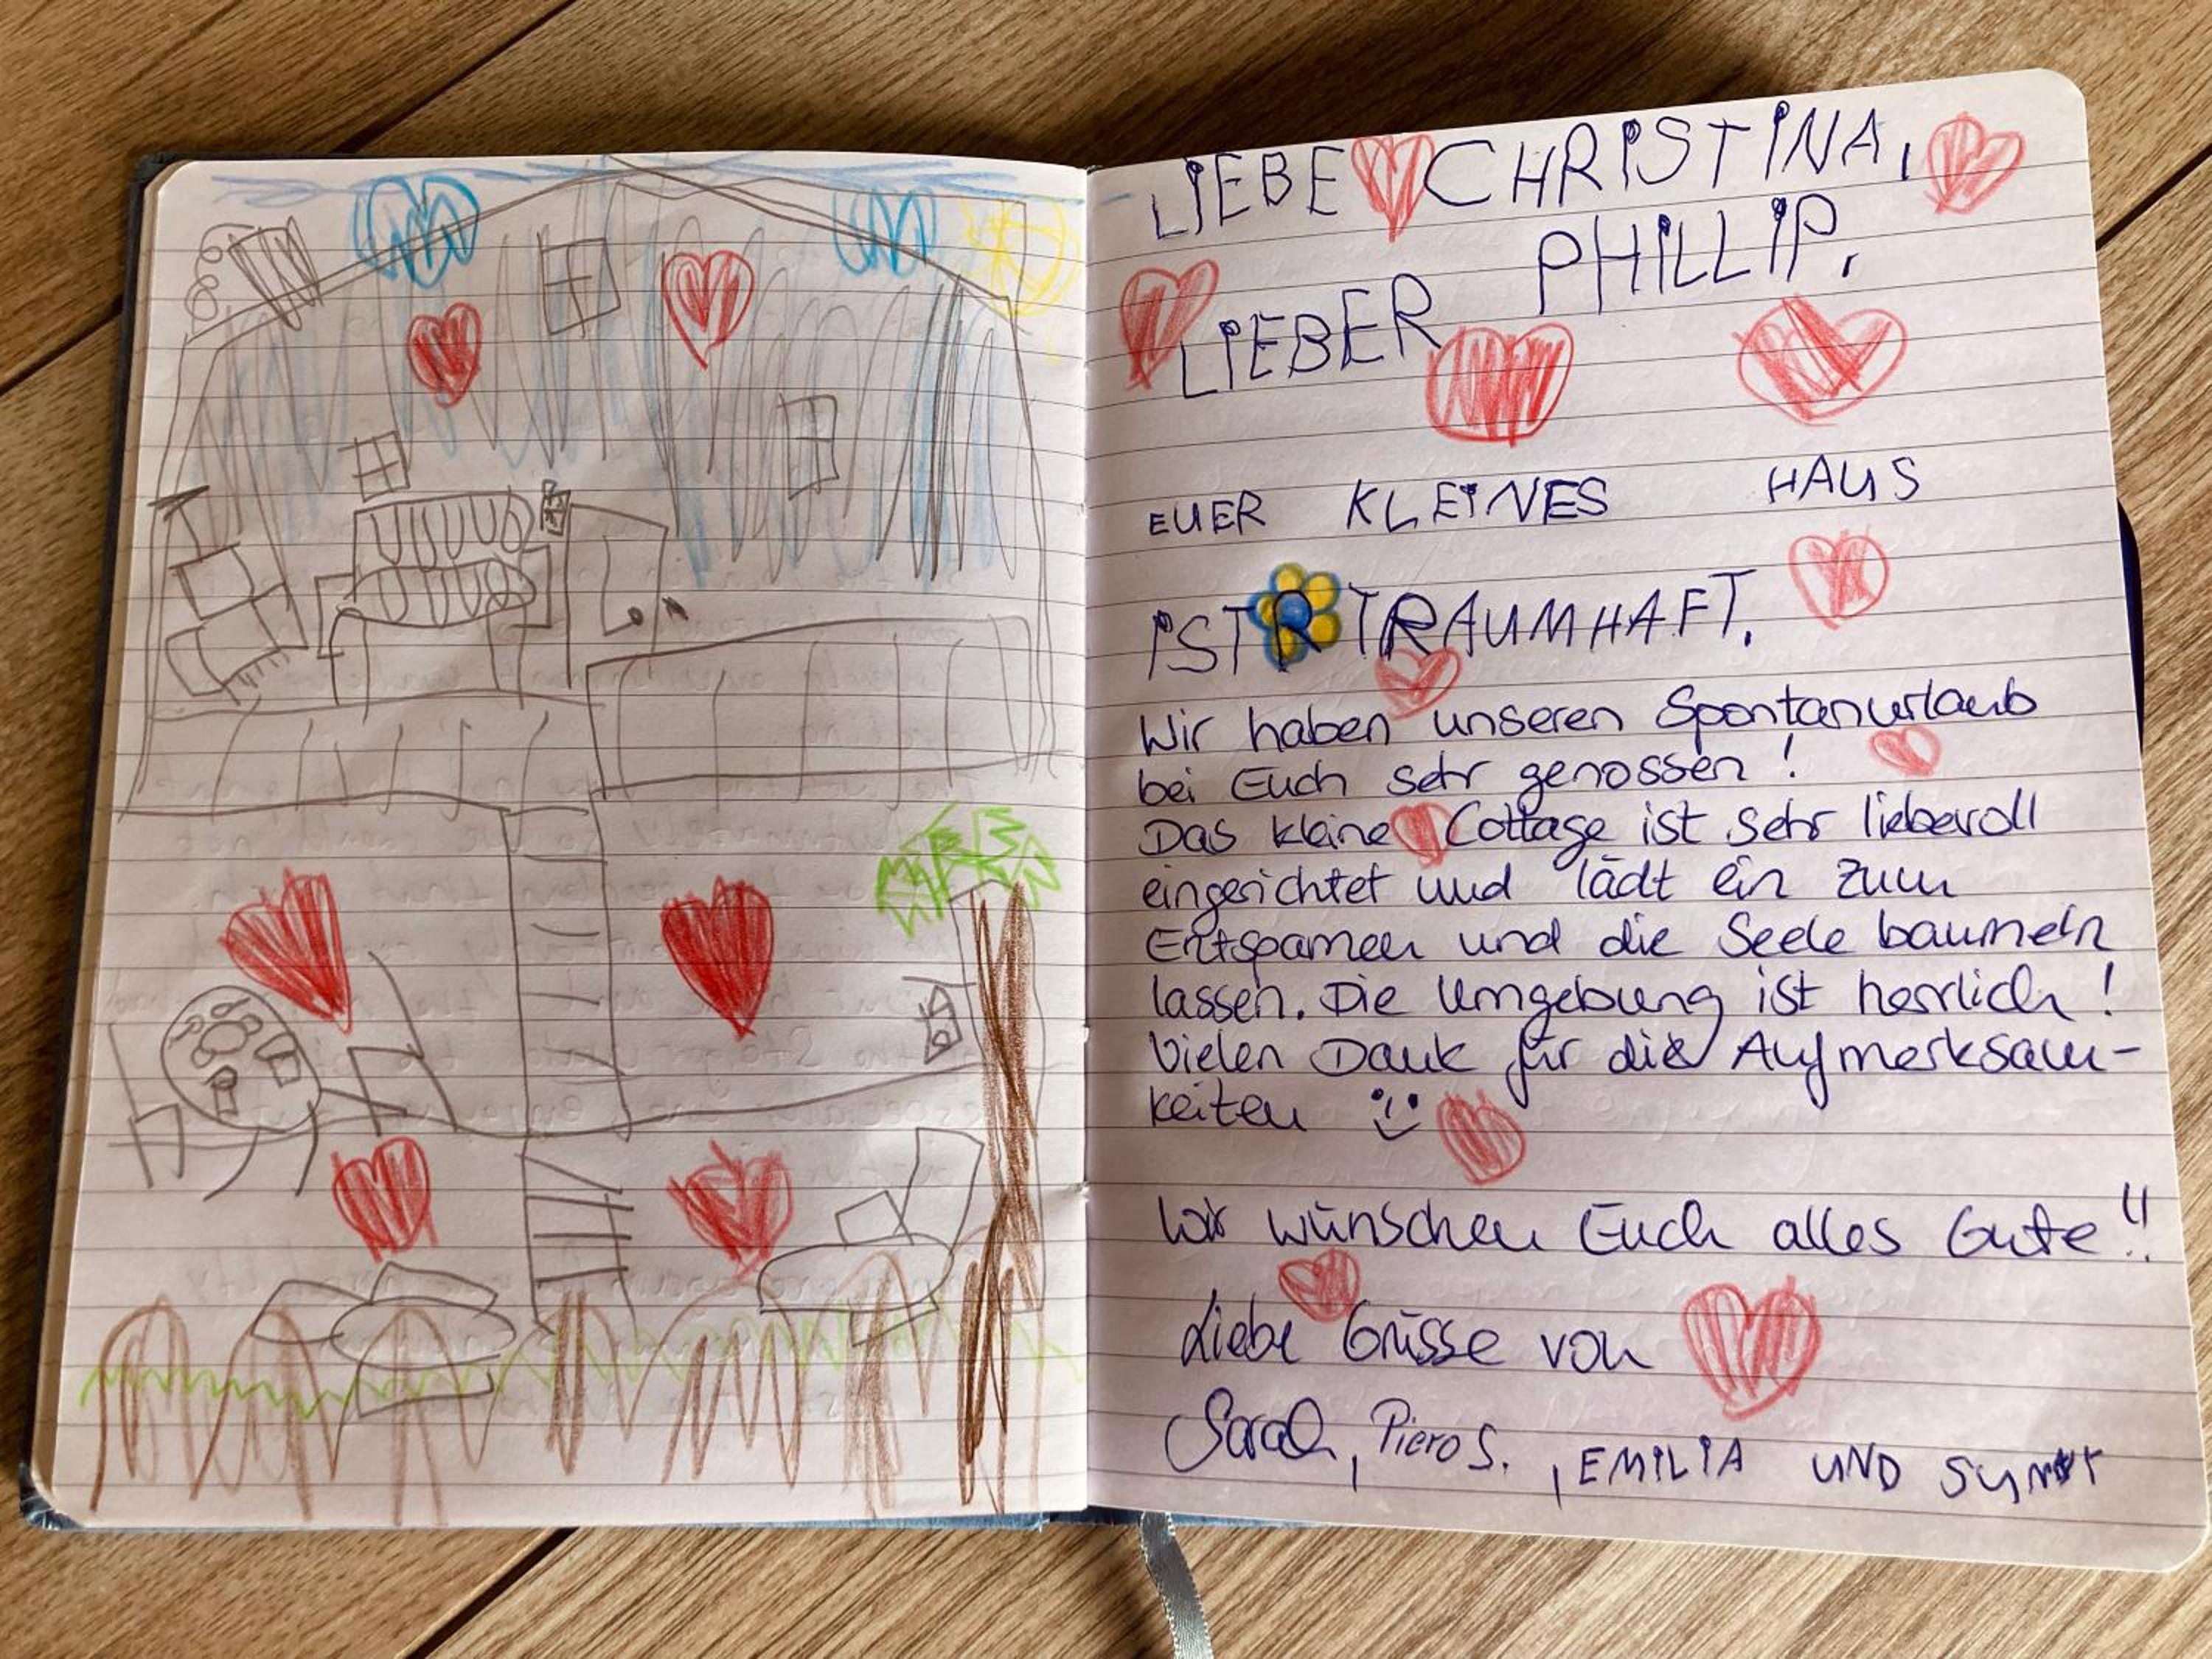 LIEBE CHRISTINA,
LIEBER PHILLIP,
EUER KLEINES HAUS
IST TRAUMHAFT.
Wir haben unseren Spontanurlaub
bei Euch sehr genossen!
Das kleine Cottage ist sehr liebevoll
eingerichtet und lädt ein zum
Entspannen und die Seele baumeln
lassen. Die Umgebung ist herrlich!
Vielen Dank für die Aufmerksam-
keiten
Wir wünschen Euch alles Gute!!
Liebe Grüsse von
Sarah, Piero S., EMILIA UND